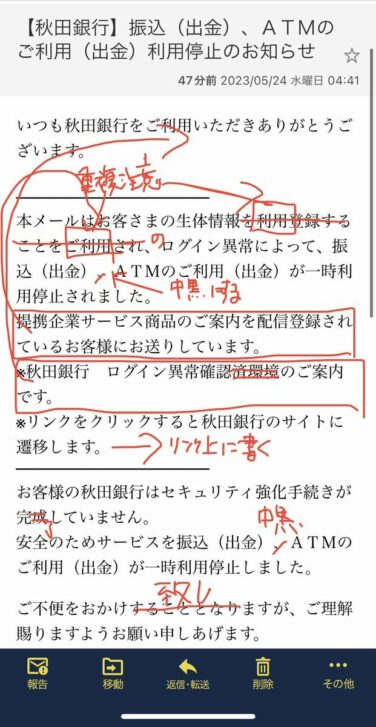 【秋田銀行】振込（出金）、ＡＴＭの
ご利用（出金）利用停止のお知らせ
47分前 2023/05/24 水曜日 04:41
いつも秋田銀行をご利用いただきありがとうご
ざいます。
重複注意
本メールはお客さまの生体情報を利用登録する
ことをご利用され、の ログイン異常によって、振
込（出金）、ＡＴＭのご利用（出金）が一時利
用停止されました。
中黒にする
提携企業サービス商品のご案内を配信登録され
ているお客様にお送りしています。
※秋田銀行　ログイン異常確認済環境のご案内
です。
※リンクをクリックすると秋田銀行のサイトに
遷移します。
リンク上に書く
お客様の秋田銀行はセキュリティ強化手続きが
完成していません。
了
中黒
安全のためサービスを振込（出金）、ＡＴＭの
ご利用（出金）が一時利用停止しました。
致し
ご不便をおかけすることとなりますが、ご理解
賜りますようお願い申しあげます。
報告
移動
返信・転送
削除
その他